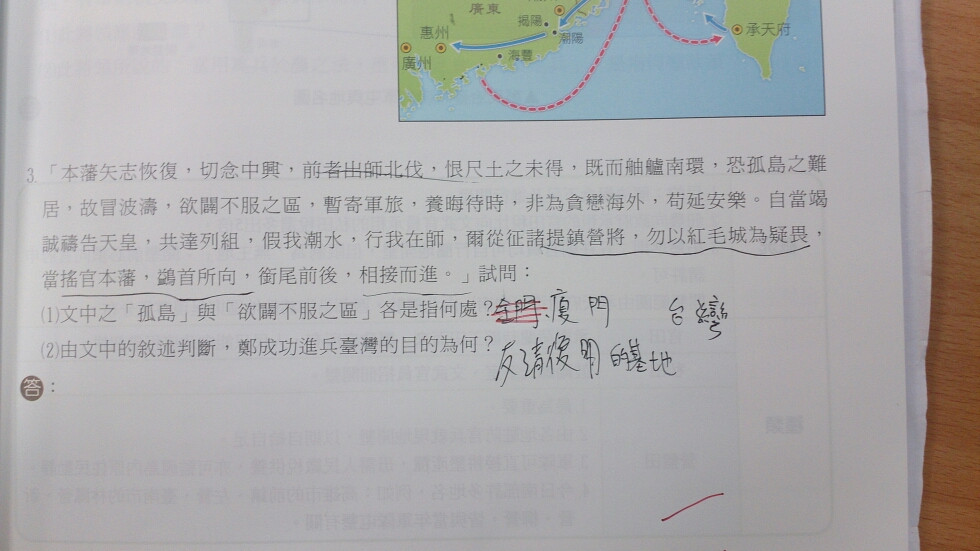 廣東
惠州
廣州
揭陽
潮陽
海豐
承天府
3.「本藩矢志恢復，切念中興，前者出師北伐，恨尺土之未得，既而舳艫南環，恐孤島之難
居，故冒波濤，欲闢不服之區，暫寄軍旅，養晦待時，非為貪戀海外，苟延安樂。自當竭
誠禱告天皇，共達列組，假我潮水，行我在師，爾從征諸提鎮營將，勿以紅毛城為疑畏，
當搖官本藩，鷁首所向，銜尾前後，相接而進。」試問：
(1)文中之「孤島」與「欲闢不服之區」各是指何處？廈門 台灣
(2)由文中的敘述判斷，鄭成功進兵臺灣的目的為何？反清復明的基地
答：